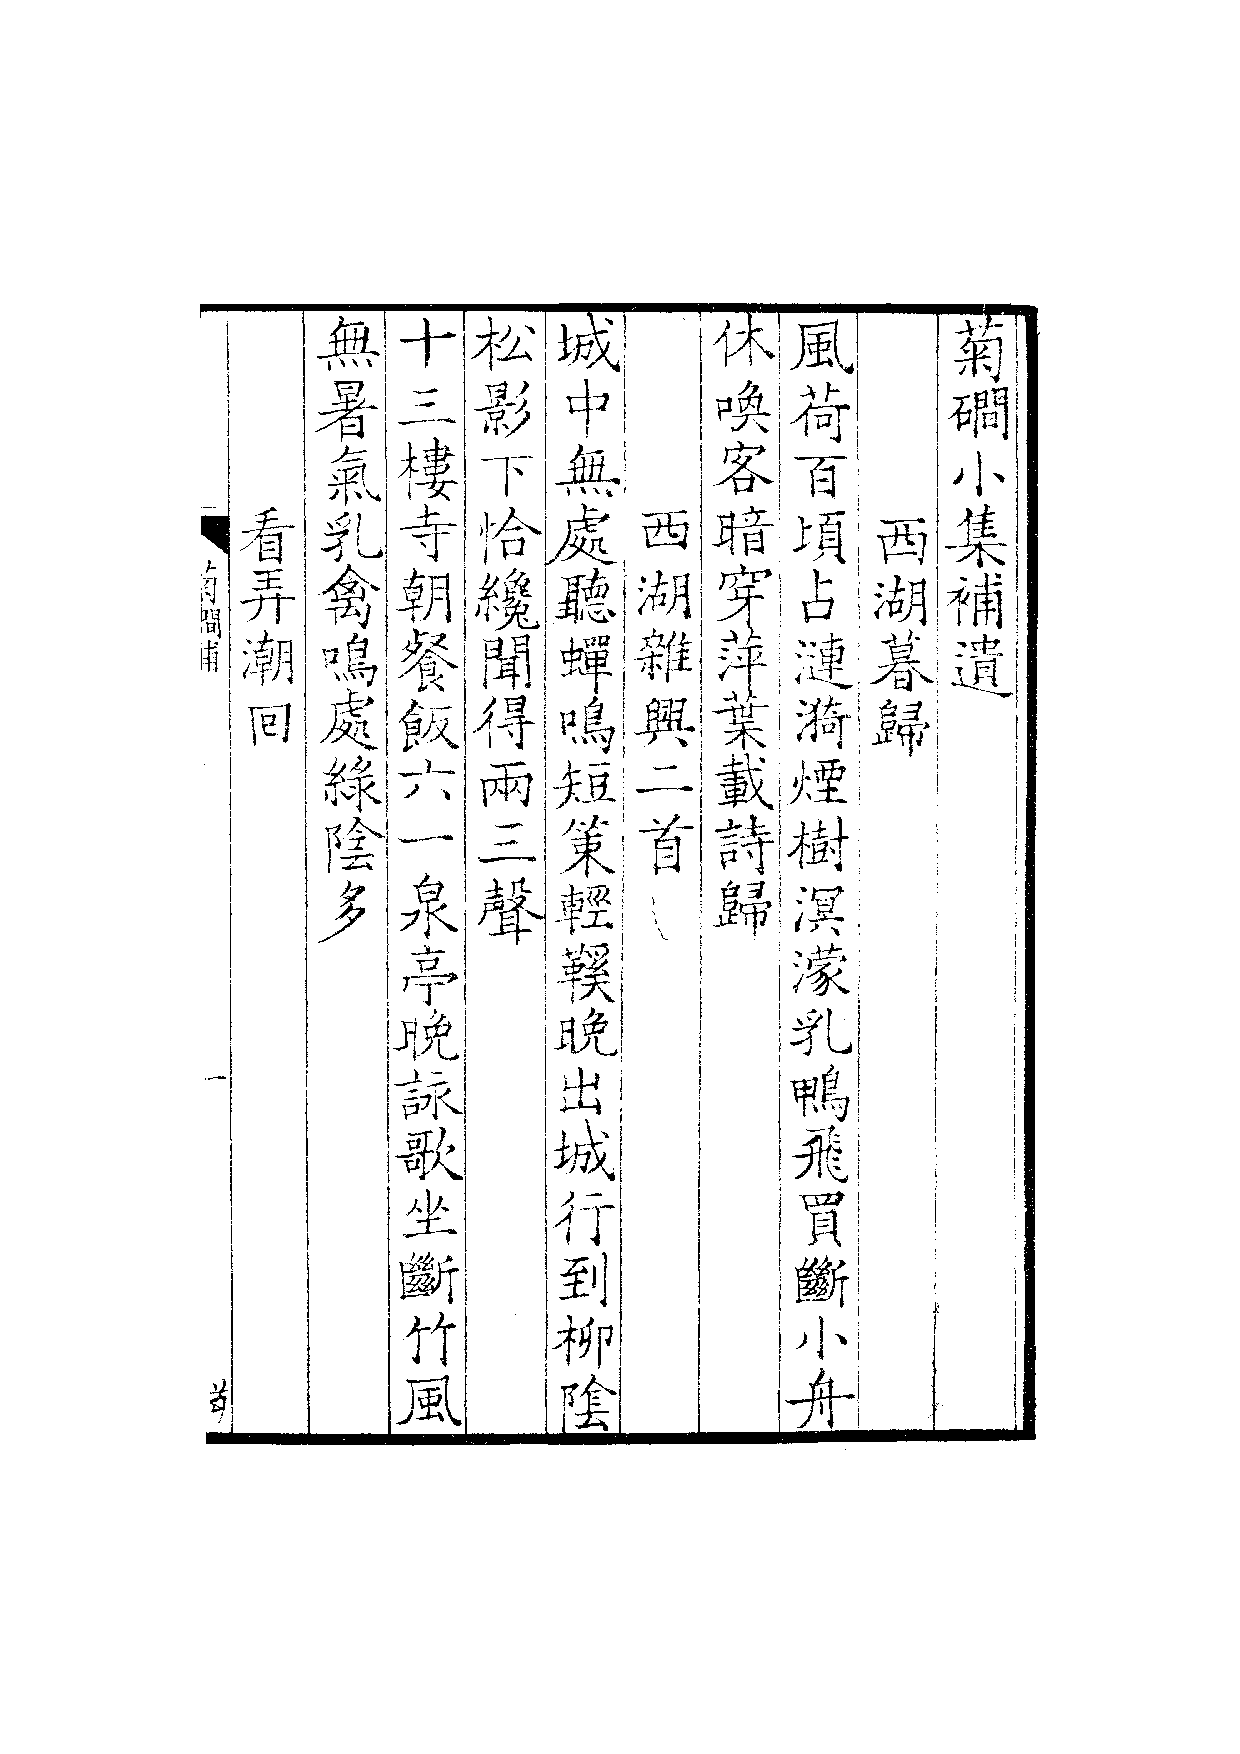 菊磵小集補遺
西湖暮歸
風荷百頃占漣漪煙樹溟濛乳鴨飛買斷小舟
休喚客暗穿萍葉載詩歸
西湖雜興二首
城中無處聽蟬鳴短策輕鞵晚出城行到柳陰
松影下恰纔聞得兩三聲
十三樓寺朝餐飯六一泉亭晚詠歌坐斷竹風
無暑氣乳禽鳴處綠陰多
看弄潮回
菊磵補
一